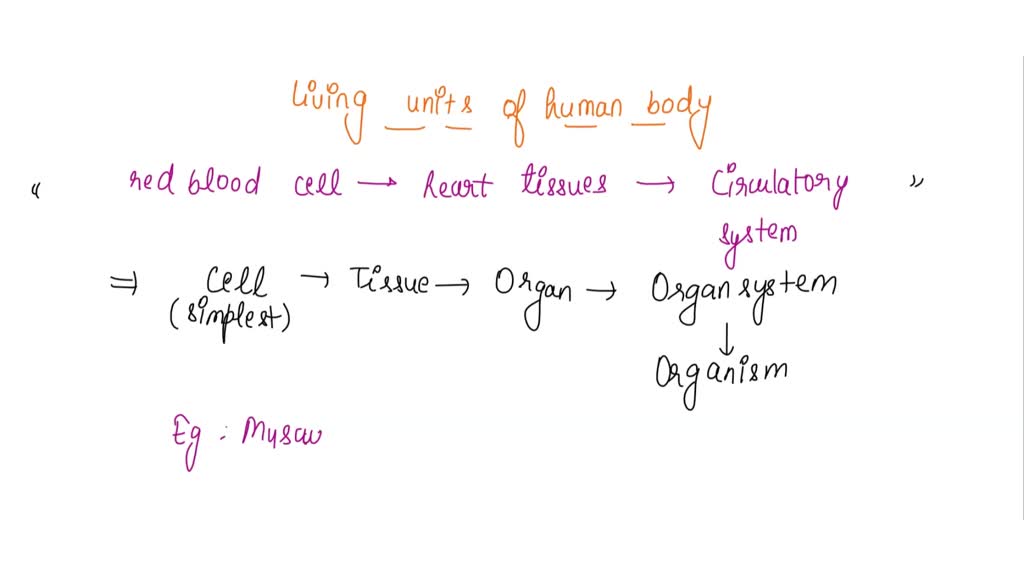 Living units of human body
“ red blood cell → heart tissues → Circulatory ”
system
⇒ Cell → Tissue → Organ → Organ system
(simplest) ↓
Organism
Eg :